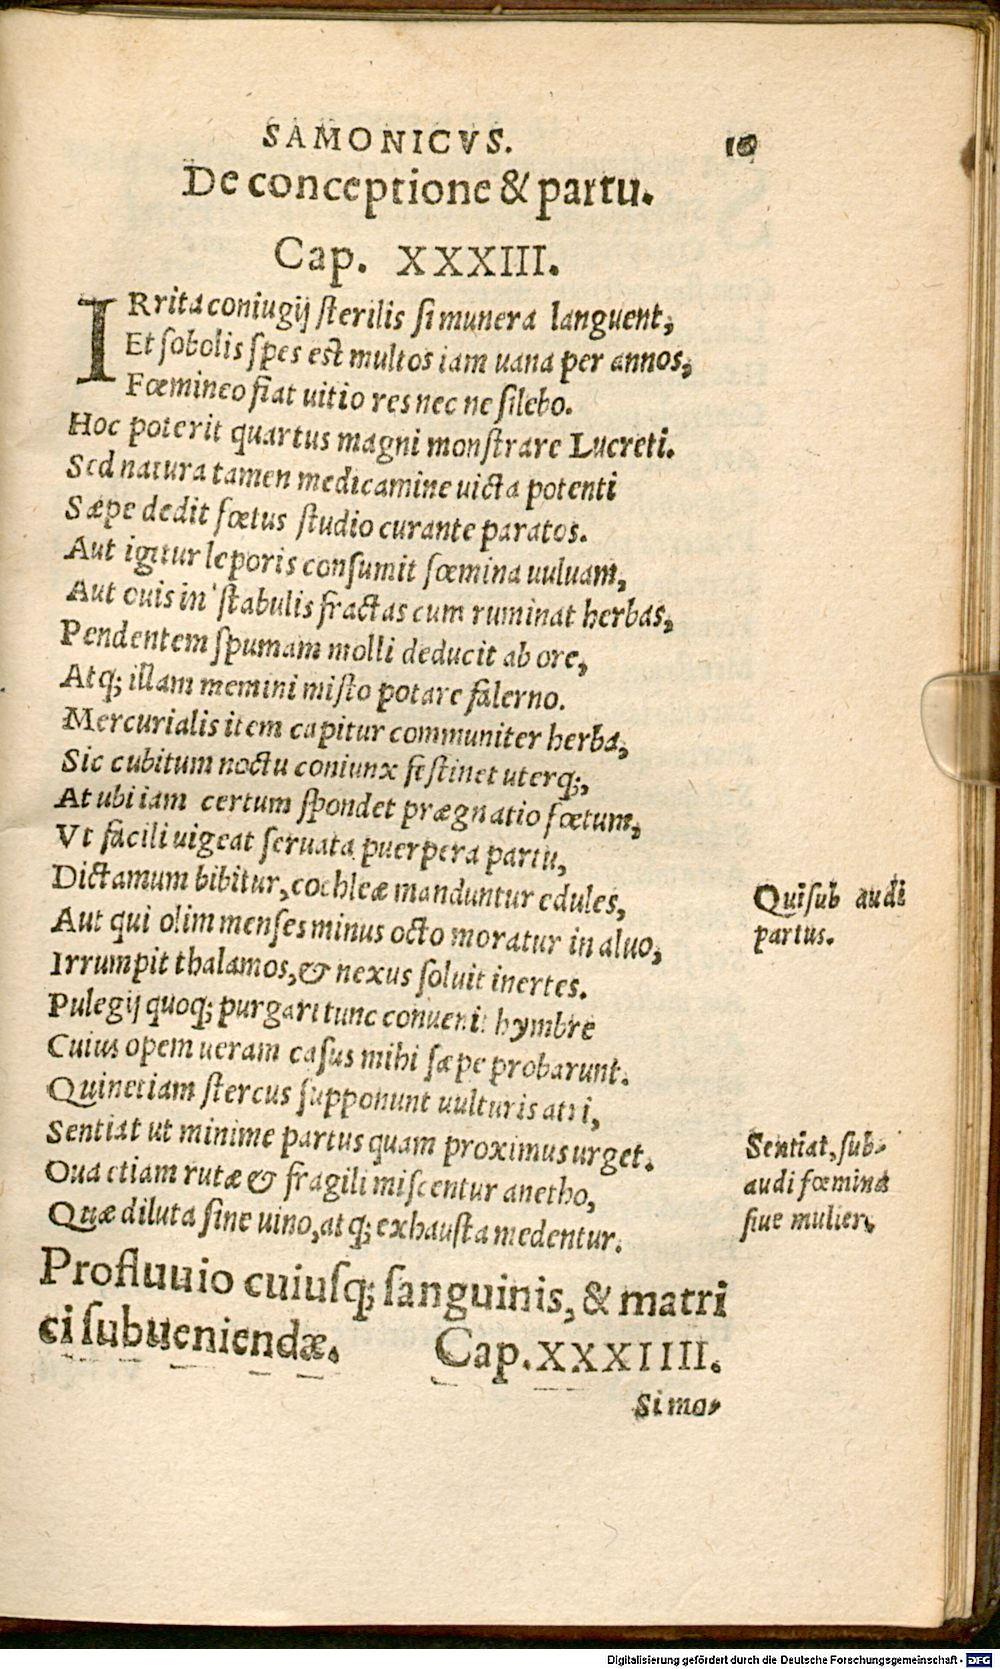 SAMONICVS. 16
De conceptione & partu.
Cap. XXXIII.
IRrita coniugij sterilis si munera languent,
Et sobolis spes est multos iam uana per annos,
Fœmineo fiat uitio res nec ne silebo.
Hoc poterit quartus magni monstrare Lucreti.
Sed natura tamen medicamine uicta potenti
Sæpe dedit fœtus studio curante paratos.
Aut igitur leporis consumit fœmina uuluam,
Aut ouis in stabulis fractas cum ruminat herbas,
Pendentem spumam molli deducit ab ore,
Atq; illam memini misto potare falerno.
Mercurialis item capitur communiter herba,
Sic cubitum noctu coniunx festinet uterq;,
At ubi iam certum spondet prægnatio fœtum,
Vt facili uigeat seruata puerpera partu,
Dictamum bibitur, cochleæ manduntur edules,
Aut qui olim menses minus octo moratur in aluo,
Irrumpit thalamos, & nexus soluit inertes.
Pulegij quoq; purgari tunc conuenit hymbre
Cuius opem ueram casus mihi sæpe probarunt.
Quinetiam stercus supponunt uulturis atri,
Sentiat ut minime partus quam proximus urget.
Oua etiam rutæ & fragili miscentur anetho,
Quæ diluta sine uino, atq; exhausta medentur.
Qui sub audi
partus.
Sentiat, sub-
audi fœmina
siue mulier,
Profluuio cuiusq; sanguinis, & matri
ci subueniendæ. Cap. XXXIIII.
Si mo-
Digitalisierung gefördert durch die Deutsche Forschungsgemeinschaft - DFG